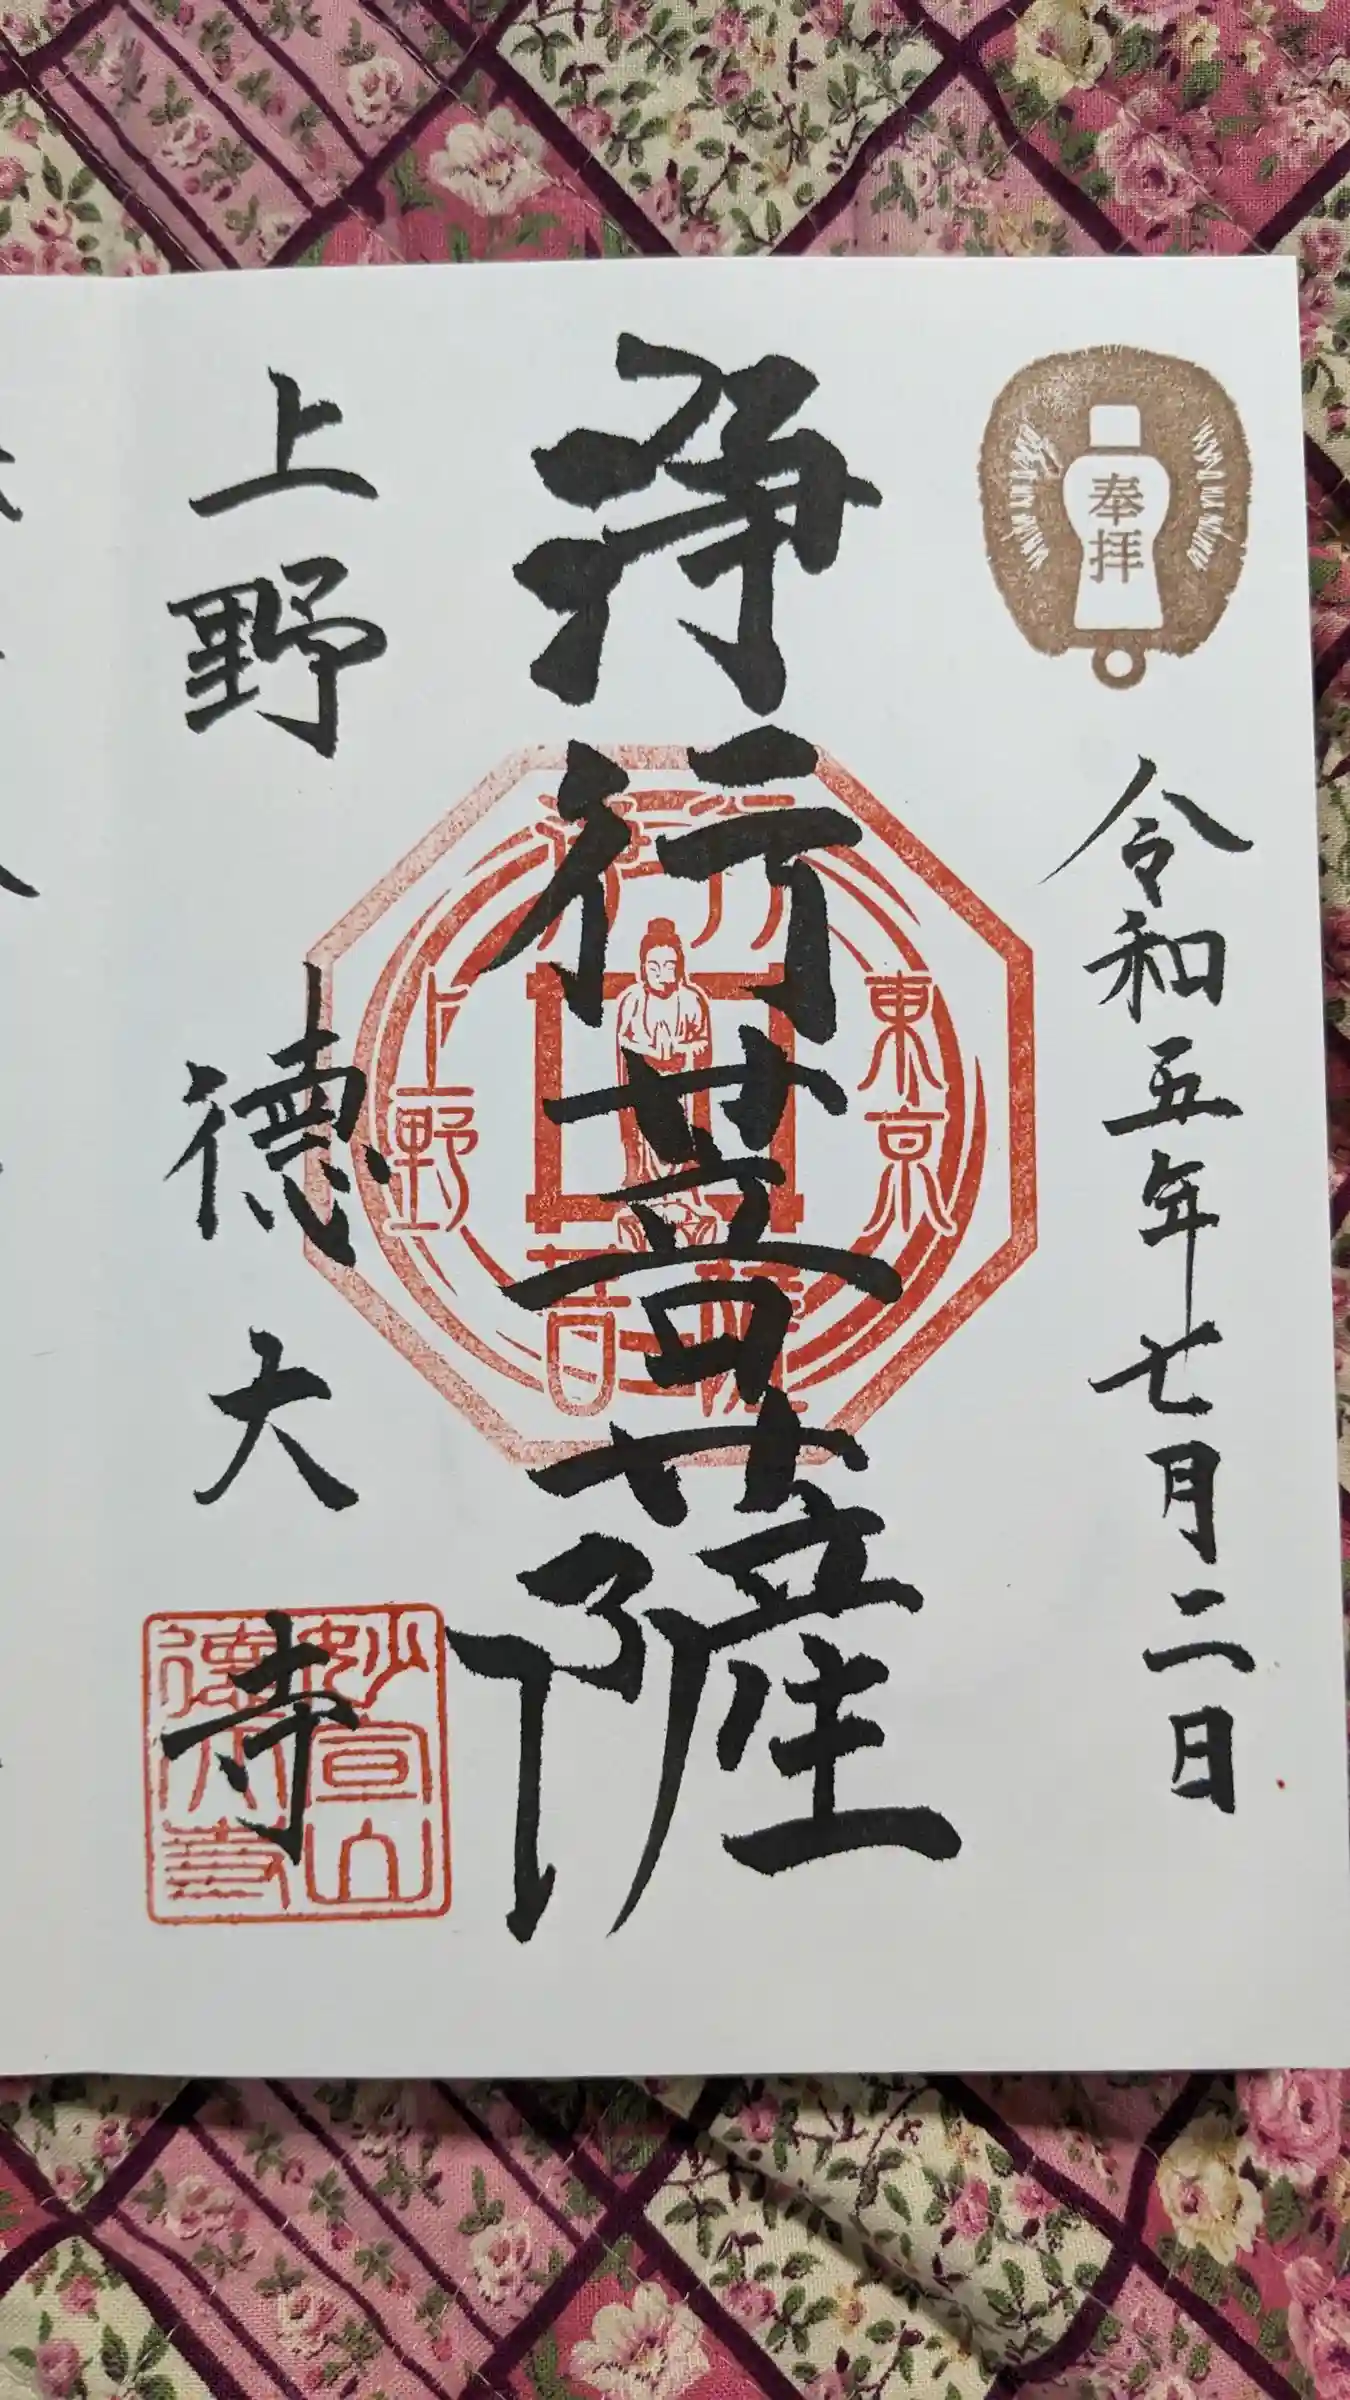 奉拝
令和五年七月二日
浄行菩薩
東京
浄行
菩薩
上野
上野 徳大寺
妙宣山
徳大寺